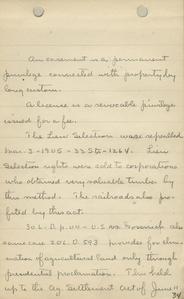 An easement is a permanent
privilege connected with property by
long custom.
A license is a revocable privilege
issued for a fee.
The Lieu Selection was repealed
Mar. 3 - 1905 - 33 Stat. 1264. Lieu
Selection rights were sold to corporations
who obtained very valuable timber by
this method. The railroads also pro-
fited by this act.
30 L.D. p. 44 - U.S. vs. also
same case 30 L.D. 593 provides for elim-
ination of agricultural land only through
presidential proclamation. This held
up to the Ag. Settlement Act of June 11